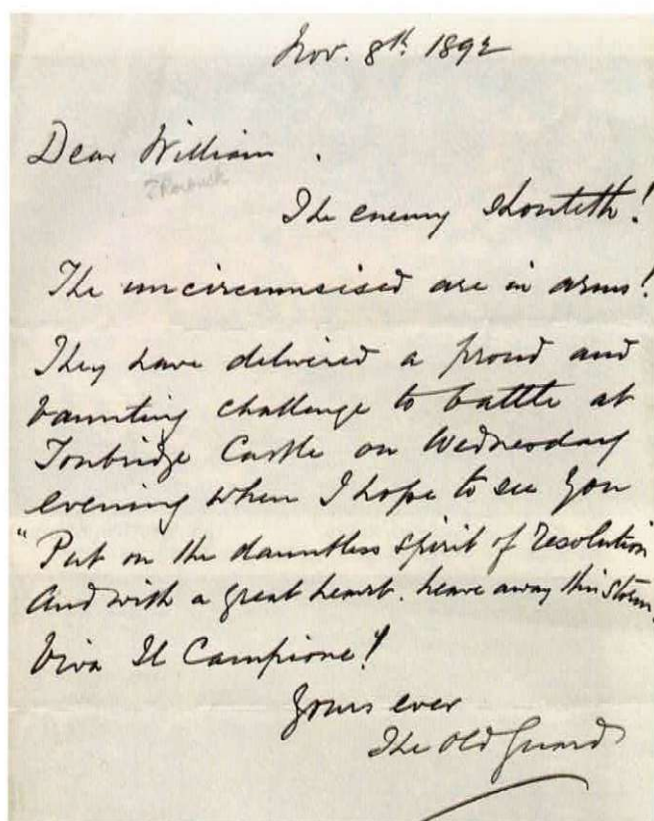 Nov. 8th 1892
Dear William.
? Roebuck
The enemy shouteth!
The uncircumsised are in arms!
They have delivered a proud and
vaunting challenge to battle at
Tonbridge Castle on Wednesday
evening when I hope to see you
"Put on the dauntless spirit of resolution
And with a great heart. heave away this storm.
Viva Il Campione!
Yours ever
The Old Guard